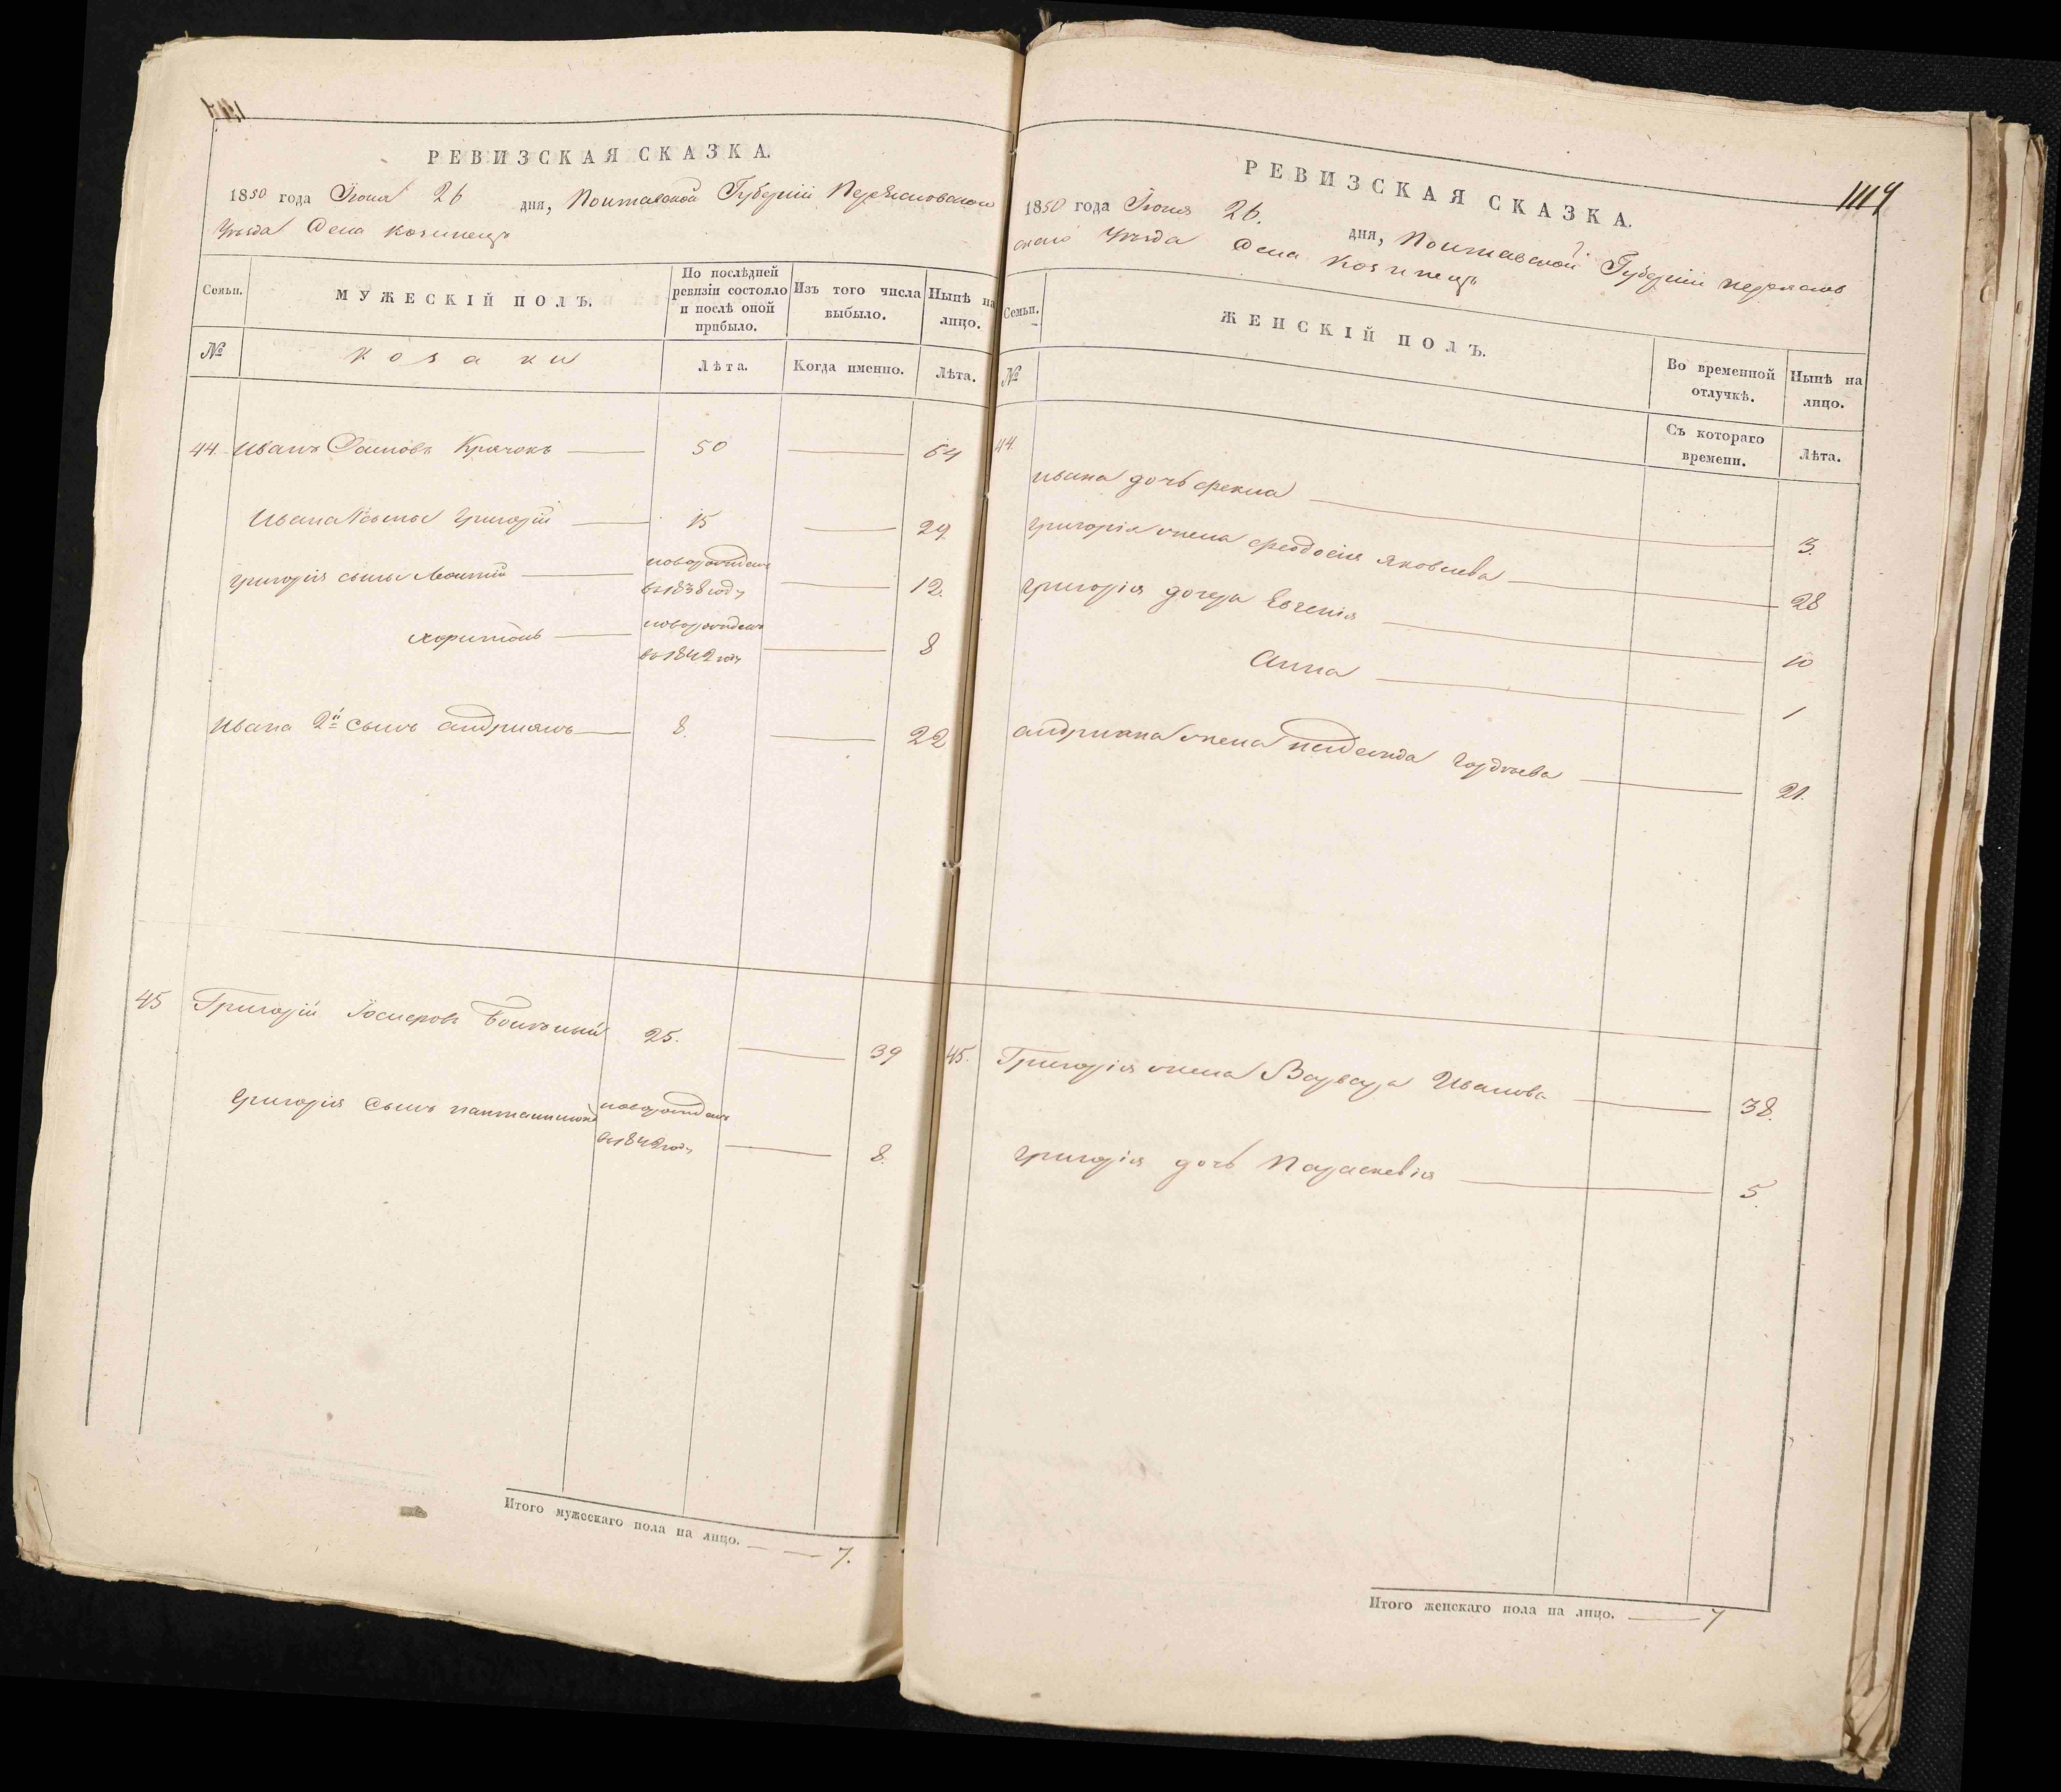 РЕВИЗСКАЯ СКАЗКА.
1850 года Іюня 26 дня, Полтавской Губерніи Переясловскаго
Уѣзда Села Козинецъ
Семьи.
МУЖЕСКІЙ ПОЛЪ.
По послѣдней
ревизіи состояло
и послѣ оной
прибыло.
Изъ того числа
выбыло.
Нынѣ на
лицо.
№
козаки
Лѣта.
Когда именно.
Лѣта.
44 Иванъ Крячокъ 50 64
Ивана сынъ Григорій 15 29
Григорія сынъ Леонтій новорожденъ 12.
въ 1838 году
Харитонъ новорожденъ 8
въ 1842 году
Ивана 2й сынъ андриянъ 8. 22
45 Григорій 25. 39
Григорія сынъ новорожденъ 8.
въ 1842 году
Итого мужескаго пола на лицо. 7.
1119
РЕВИЗСКАЯ СКАЗКА.
1850 года Іюня 26. дня, Полтавской Губерніи переяслов
скаго Уѣзда Села Козинецъ
Семьи.
ЖЕНСКІЙ ПОЛЪ.
Во временной
отлучкѣ.
Нынѣ на
лицо.
№
Съ котораго
времени.
Лѣта.
44.
Ивана дочь фекла 3.
Григорія жена феодосія яковлева 28
Григорія дочери Евгенія 10
Анна 1
андрияна жена гордѣева 21.
45. Григорія жена Варвара Иванова 38.
Григорія дочь Параскевія 5.
Итого женскаго пола на лицо. 7